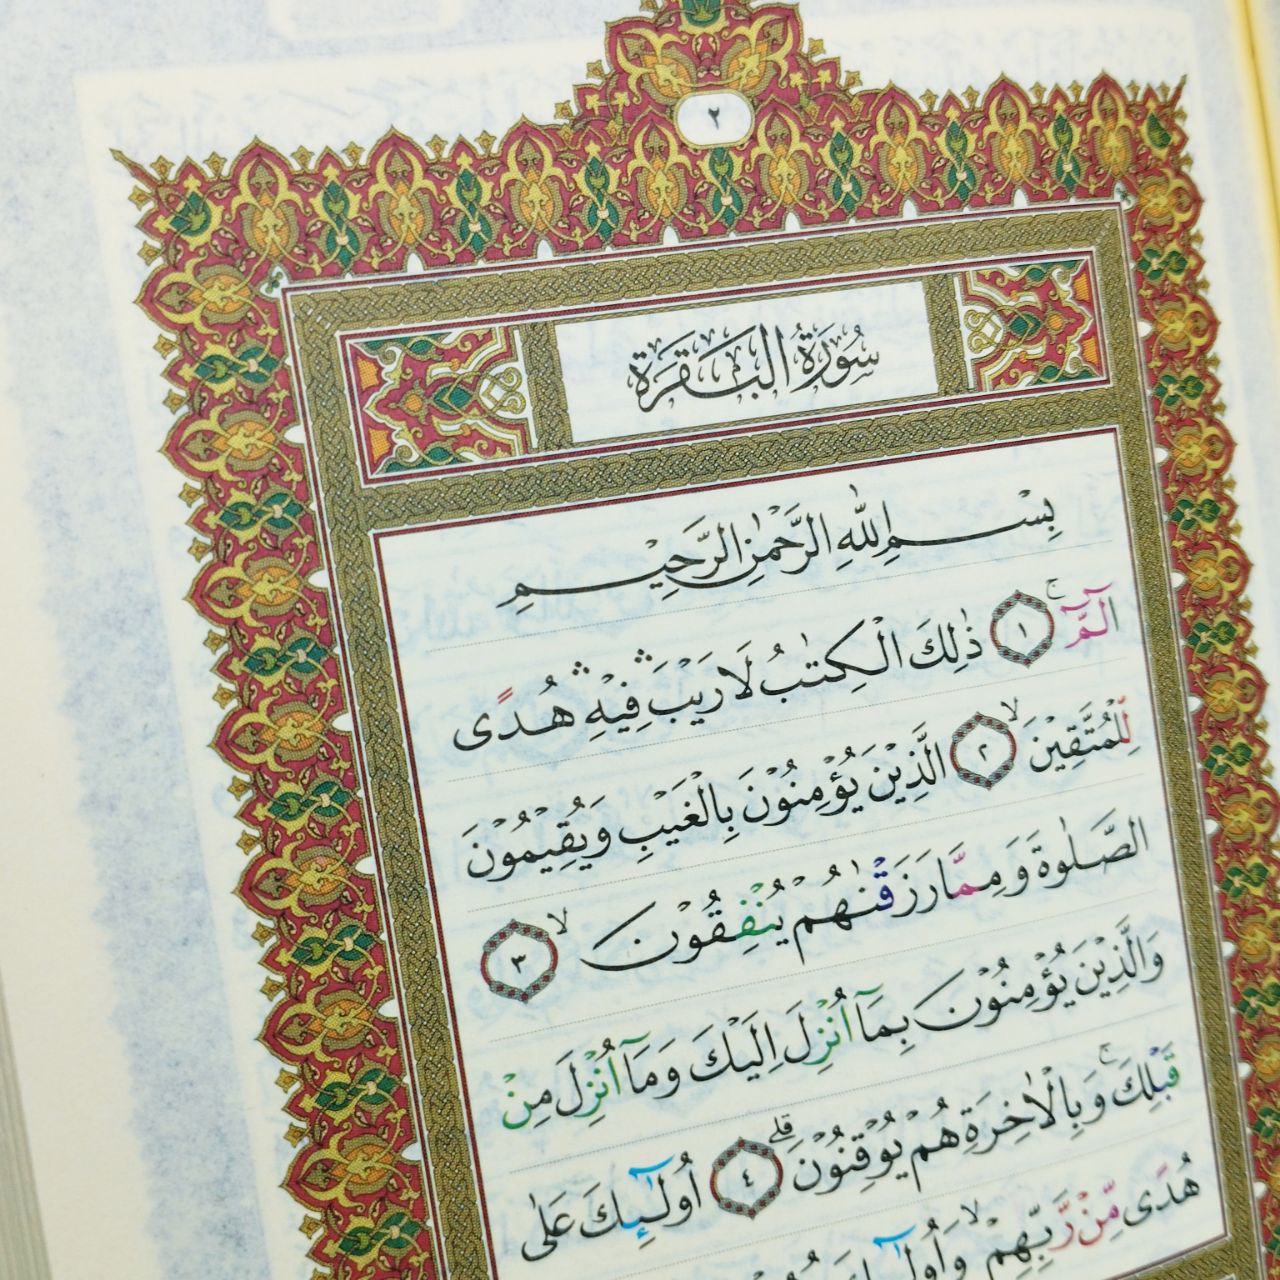 ٢
سُورَةُ الْبَقَرَةِ
بِسْمِ اللّٰهِ الرَّحْمٰنِ الرَّحِيْمِ
الٓمّٓ ۚ ١ ذٰلِكَ الْكِتٰبُ لَا رَيْبَ ۛ فِيْهِ ۛ هُدًى
لِّلْمُتَّقِيْنَ ۙ ٢ الَّذِيْنَ يُؤْمِنُوْنَ بِالْغَيْبِ وَيُقِيْمُوْنَ
الصَّلٰوةَ وَمِمَّا رَزَقْنٰهُمْ يُنْفِقُوْنَ ۙ ٣
وَالَّذِيْنَ يُؤْمِنُوْنَ بِمَآ اُنْزِلَ اِلَيْكَ وَمَآ اُنْزِلَ مِنْ
قَبْلِكَ ۚ وَبِالْاٰخِرَةِ هُمْ يُوْقِنُوْنَ ۗ ٤ اُولٰۤىِٕكَ عَلٰى
هُدًى مِّنْ رَّبِّهِمْ ۙ